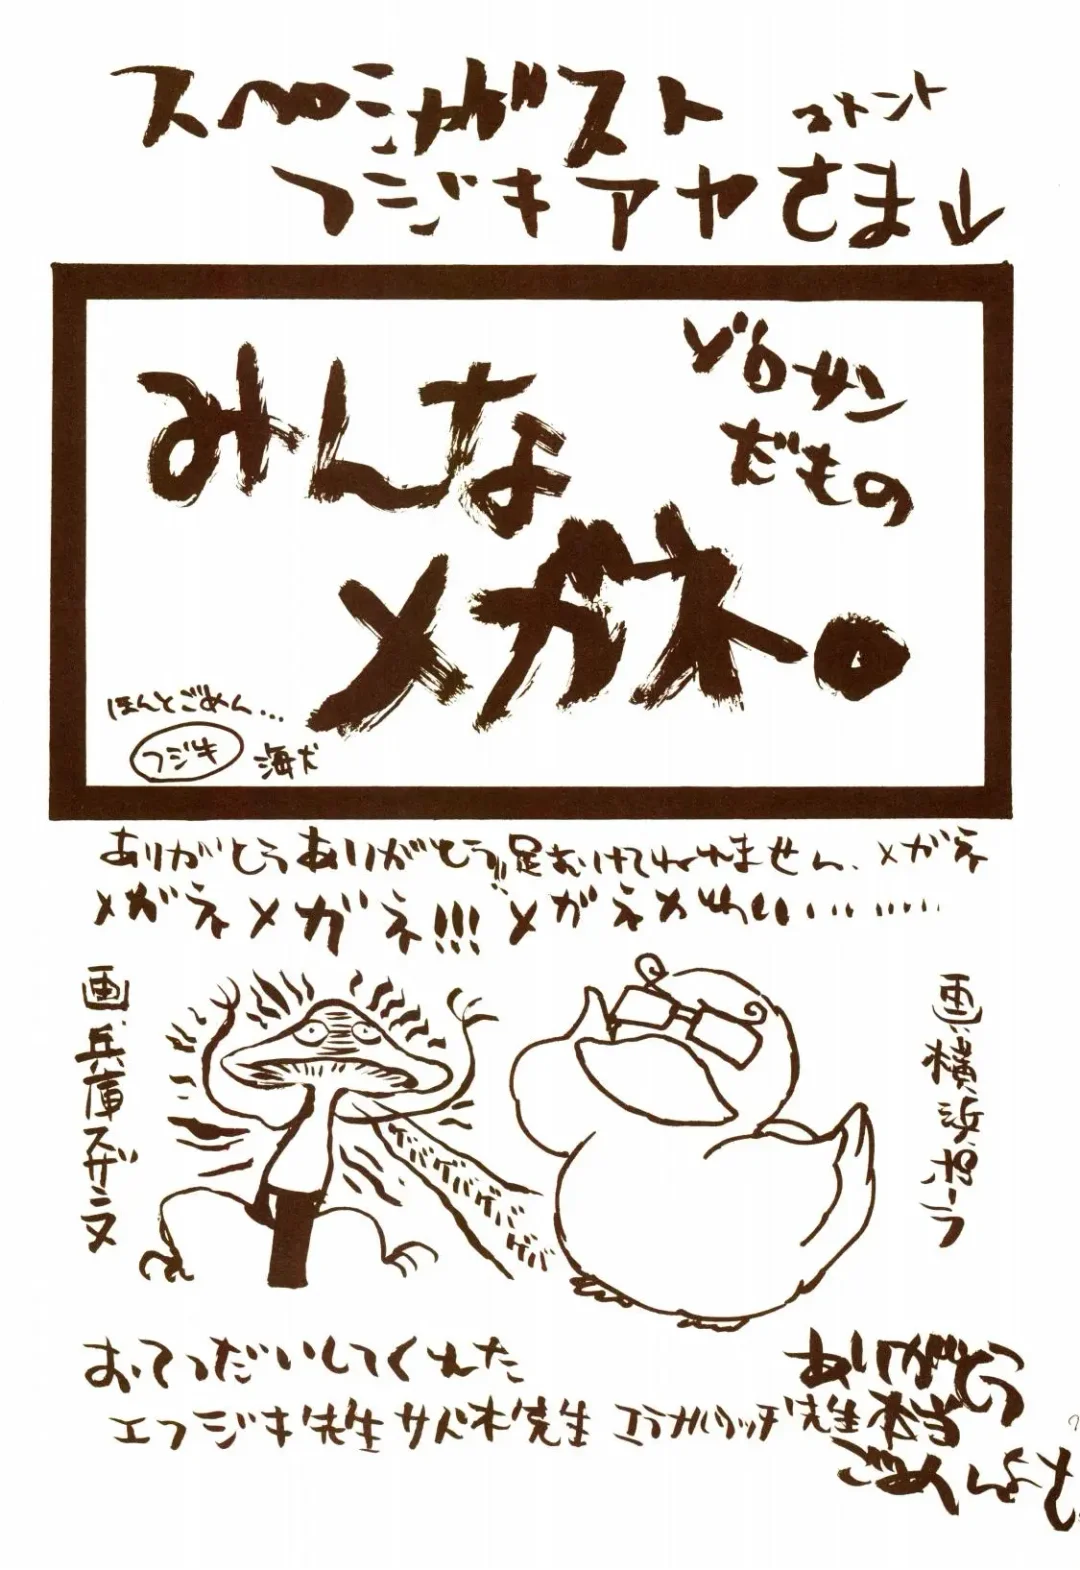 スペシャルゲスト コメント
フジキアヤさま↓
みんな
メガネ。
ゾロサン
だもの
ほんとごめん…
フジキ 海犬
ありがとうありがとう!!足むけてねれません、メガネ
メガネメガネ!!!メガネめ
画、兵庫スザンヌ
ゲバゲバゲバゲバ
ゲバ
画、横浜ポーラ
おてつだいしてくれた
エフジキ先生 先生 先生
ありがとう
本当
ごめんよも